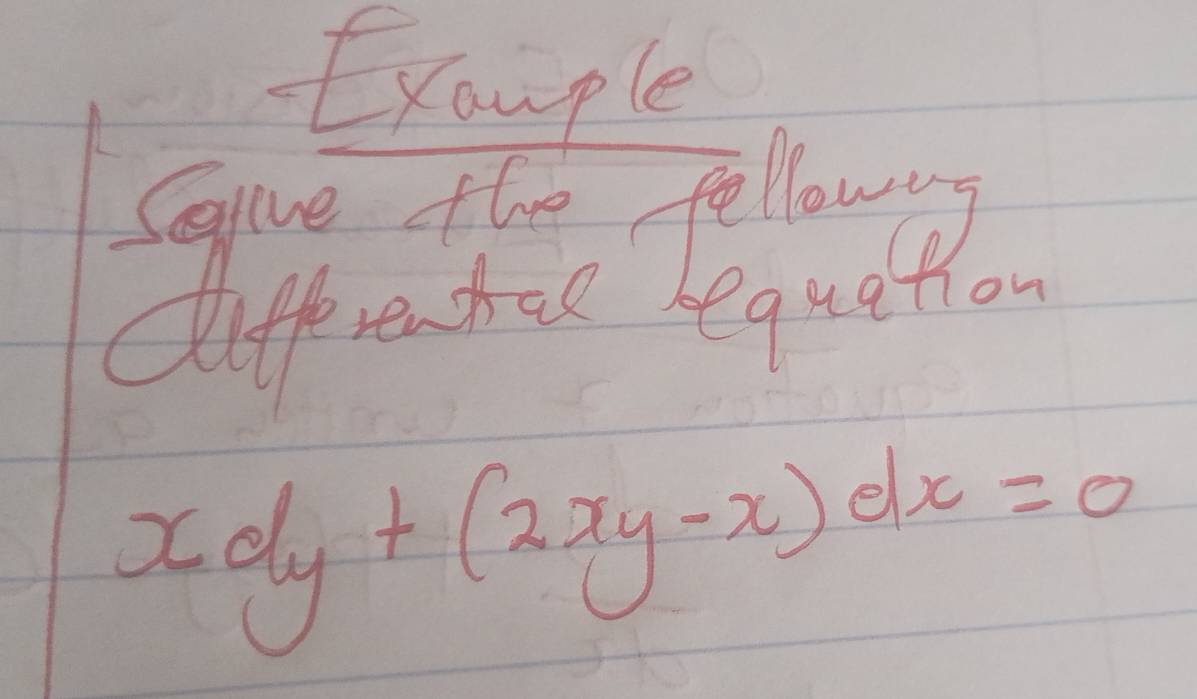 Example
Solve the following
differential equation
x dy + (2xy - x) dx = 0